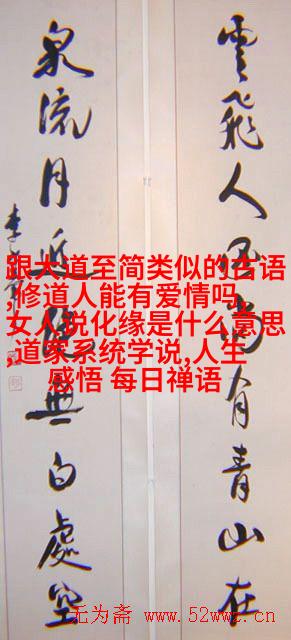 雲飛人尚有青山在
泉流月無白處空
李
跟大道至简类似的古语
,修道人能有爱情吗,
女人说化缘是什么意思
,道家系统学说,人生
感悟 每日禅语
无为斋 www.52wwz.cn